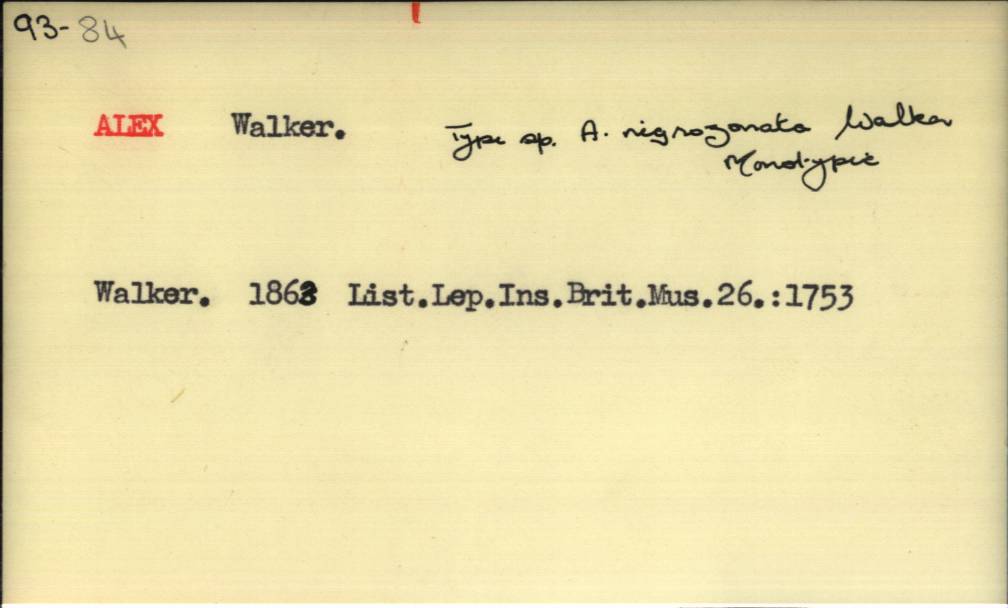 93-84
ALEX Walker. Type sp. A. nigrozonata Walker
Monotypic
Walker. 1863 List.Lep.Ins.Brit.Mus.26.:1753